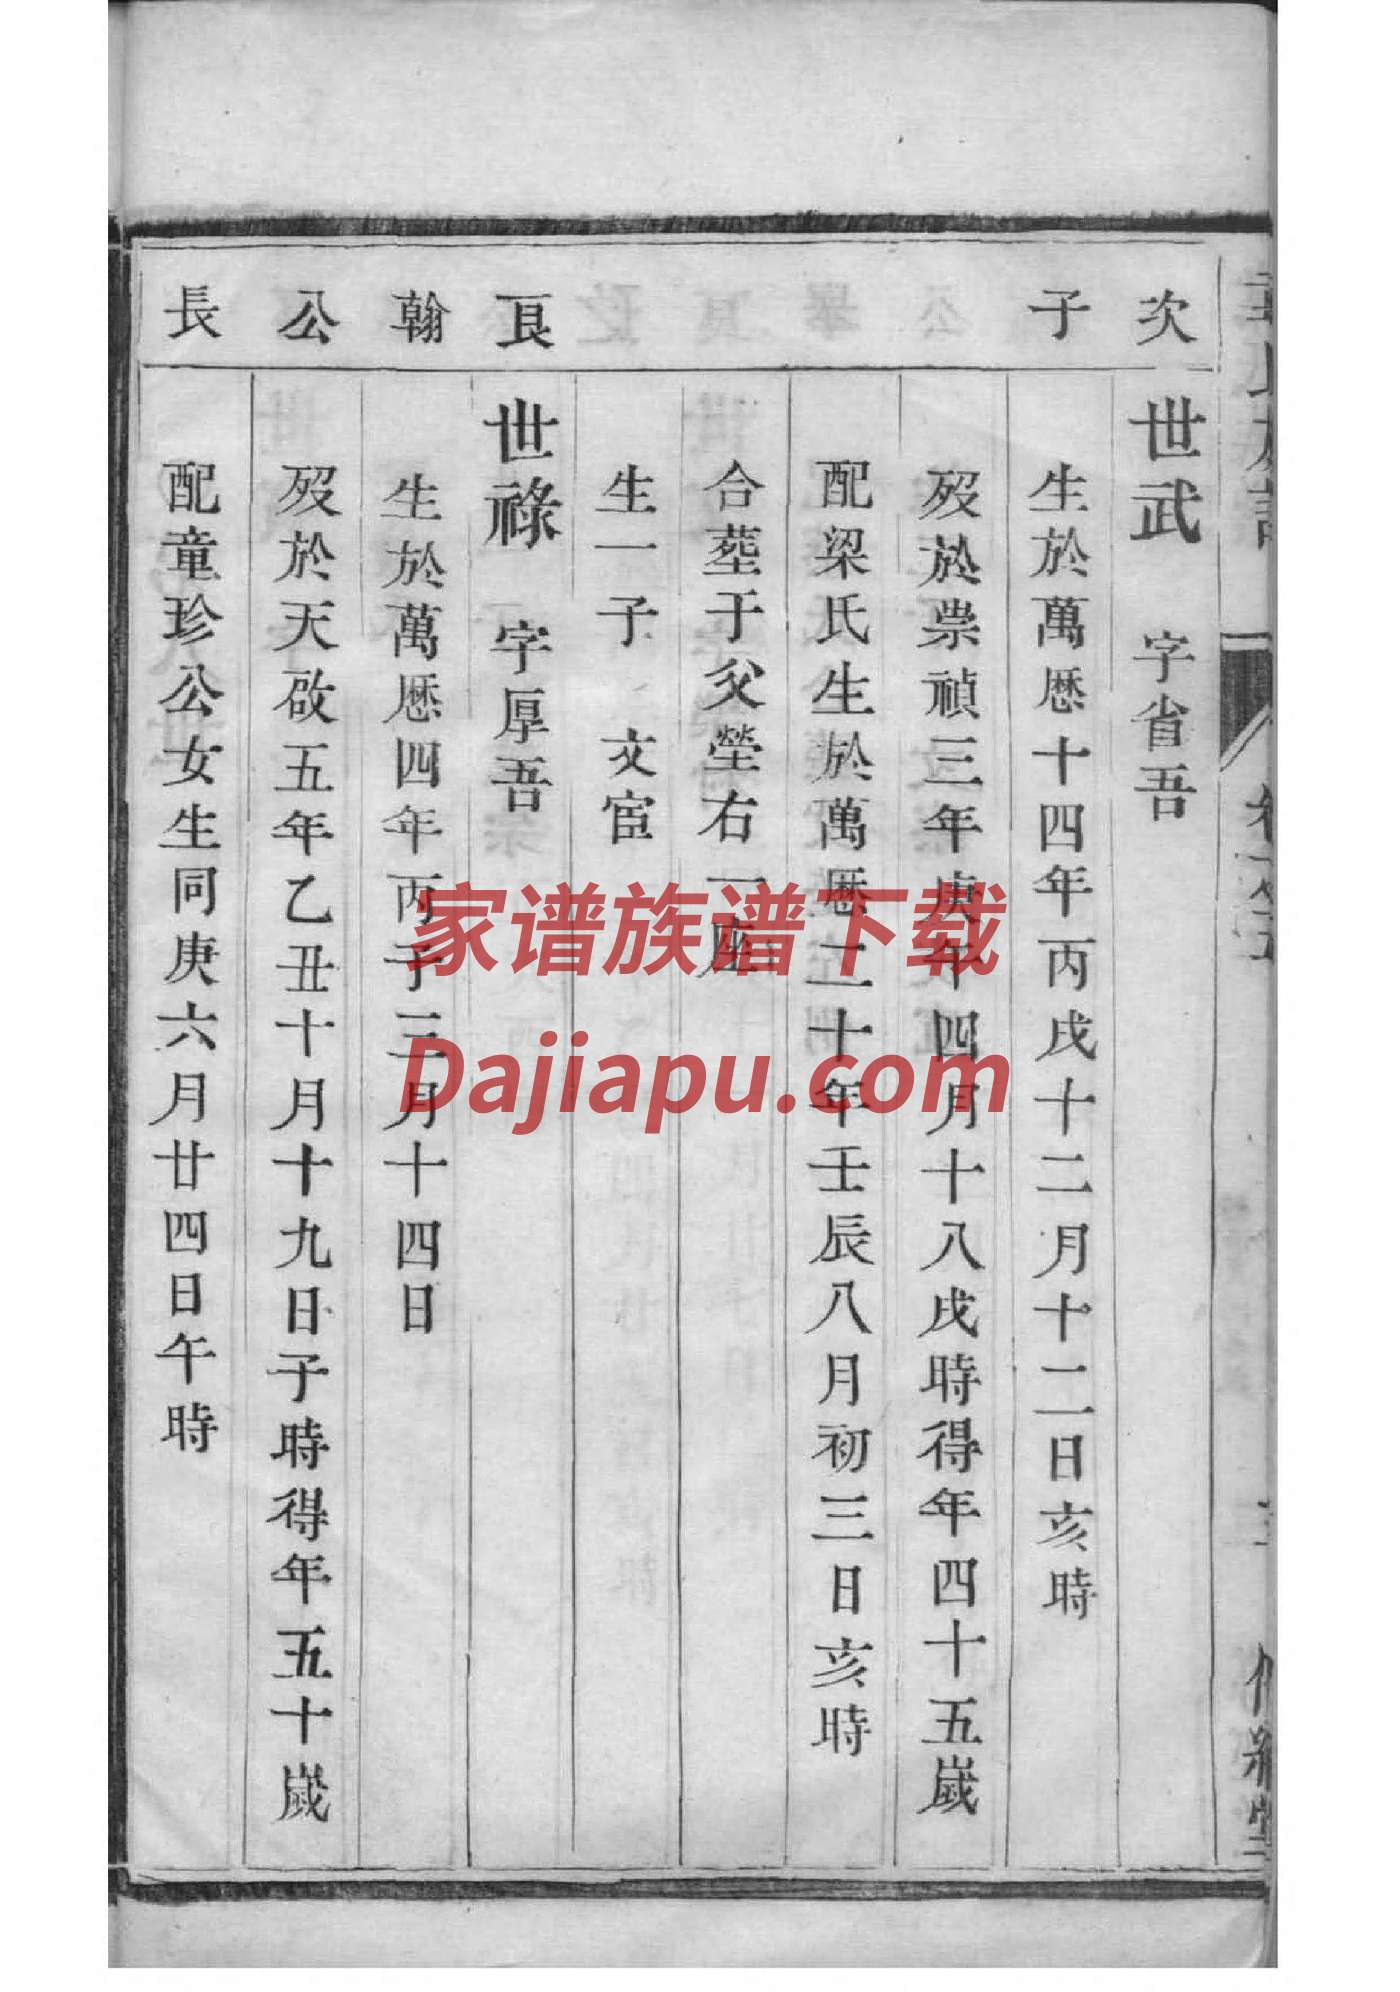 次
世武 字省吾
子
生於萬厯十四年丙戌十二月十二日亥時
歿於崇禎三年庚午四月十八戌時得年四十五歲
配梁氏生於萬厯二十年壬辰八月初三日亥時
合葬于父塋右一座
生一子 文宦
良
世祿 字厚吾
翰
生於萬厯四年丙子三月十四日
公
歿於天啟五年乙丑十月十九日子時得年五十歲
長
配童珍公女生同庚六月廿四日午時
家谱族谱下载
Dajiapu.com